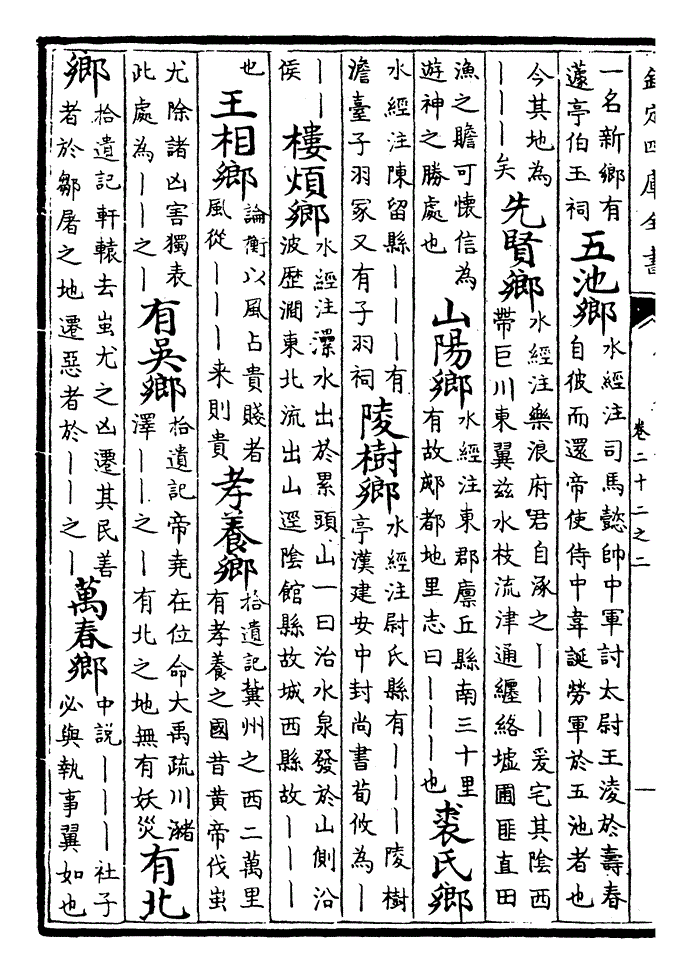 欽定四庫全書
卷二十二之二
一名新鄉有
蘧亭伯玉祠
五池鄉
水經注司馬懿帥中軍討太尉王淩於壽春
自彼而還帝使侍中韋誕勞軍於五池者也
今其地為
丨丨丨矣
先賢鄉
水經注樂浪府君自涿之丨丨丨爰宅其陰西
帶巨川東翼兹水枝流津通纒絡墟圃匪直田
漁之贍可懷信為
遊神之勝處也
山陽鄉
水經注東郡廪丘縣南三十里
有故郕都地里志曰丨丨丨也
裘氏鄉
水經注陳留縣丨丨丨有
澹臺子羽冢又有子羽祠
陵樹鄉
水經注尉氏縣有丨丨丨陵樹
亭漢建安中封尚書荀攸為丨
丨丨
侯
樓煩鄉
水經注㶟水出於累頭山一曰治水泉發於山側沿
波歴澗東北流出山逕陰館縣故城西縣故丨丨丨
也
王相鄉
論衡以風占貴賤者
風從丨丨丨来則貴
孝養鄉
拾遺記冀州之西二萬里
有孝養之國昔黄帝伐蚩
尤除諸凶害獨表
此處為丨丨之丨
有吳鄉
拾遺記帝堯在位命大禹疏川瀦
澤丨丨之丨有北之地無有妖災
有北
鄉
拾遺記軒轅去蚩尤之凶遷其民善
者於鄒屠之地遷惡者於丨丨之丨
萬春鄉
中説丨丨丨社子
必與執事翼如也